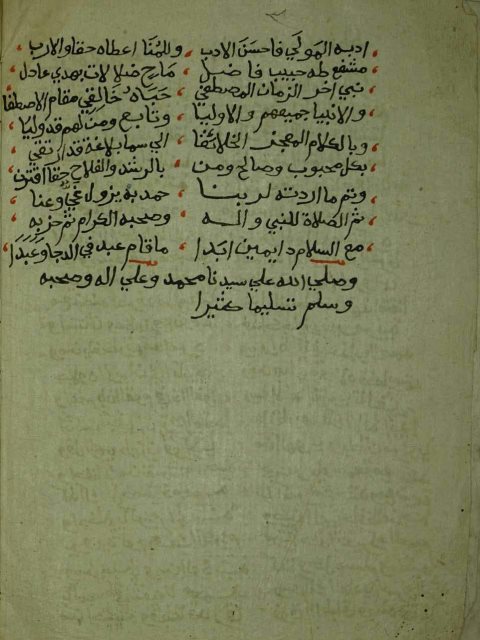 ادبه المولي فاحسن الادب وللمنا اعطاه حقا والارب
مشفع طه حبيب فاضل ماح ضلالات بهدي عادل
نبي اخر الزمان المصطفي حباه خالقي مقام الاصطفا
والانبيا جميعهم والاوليا وتابع ومن لهم قد وليا
وبالكلام المعجز الخلائقا الي سما بلاغة قد ارتقي
بكل محبوب وصالح ومن بالرشد والفلاح حقا اقترن
وتم ما اردته لربنا حمد به يزول غي وعنا
ثم الصلاة للنبي واله وصحبه الكرام ثم حزبه
مع السلام دايمين ابدا ما قام عبد في الدجا وعبدا
وصلي الله علي سيدنا محمد وعلي اله وصحبه
وسلم تسليما كثيرا